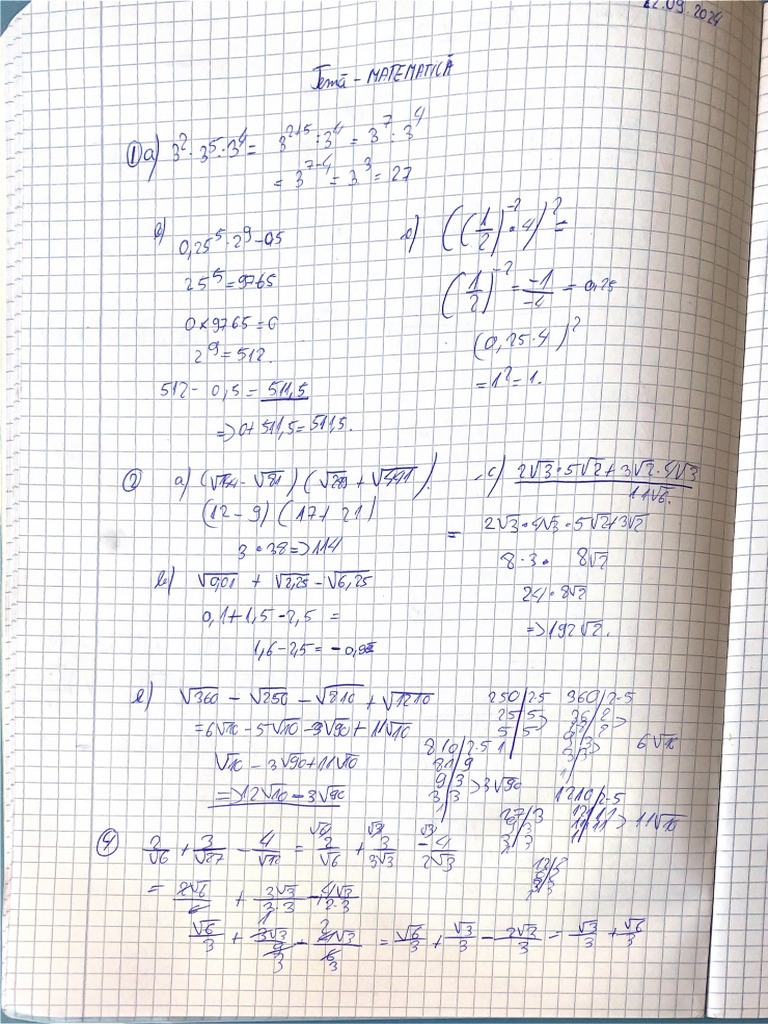 22.09.2024
Temă - MATEMATICĂ
① a) 3² · 3⁵ : 3⁴ = 3²⁺⁵ : 3⁴ = 3⁷ : 3⁴
= 3⁷⁻⁴ = 3³ = 27
b) 0,25⁵ · 2⁹ - 0,5
25⁵ = 9765
0 × 9765 = 0
2⁹ = 512.
512 - 0,5 = 511,5
=> 0 + 511,5 = 511,5.
c) ((1/2)⁻² · 4)² =
(1/2)⁻² = -1/-4 = 0,25
(0,25 · 4)²
= 1² = 1.
② a) (√144 - √81) (√289 + √441).
(12 - 9) (17 + 21)
3 · 38 => 114
b) √0,01 + √2,25 - √6,25
0,1 + 1,5 - 2,5 =
1,6 - 2,5 = - 0,9
c) 2√3 · 5√2 + 3√2 · 4√3 / 11√6.
= 2√3 · 4√3 · 5√2 + 3√2
8 · 3 · 8√2
24 · 8√2
=> 192√2.
e) √360 - √250 - √810 + √1210
= 6√10 - 5√10 - 3√90 + 11√10
√10 - 3√90 + 11√10
=> 12√10 - 3√90
250/2·5
25/5
5/5
1
360/2·5
6√10
810/2·5
81/9
9/3 > 3√90
3/3
1
1210/2·5
11/11 > 11√10
27/3
9/3
3/3
④ 2/√6 + 3/√27 - 4/√12 = 2/√6 + 3/3√3 - 4/2√3
= 2√6/6 + 3√3/3·3 - 4√3/2·3
√6/3 + 3√3/9 3 - 4√3/6 3 = √6/3 + √3/3 - 2√3/3 = √3/3 + √6/3